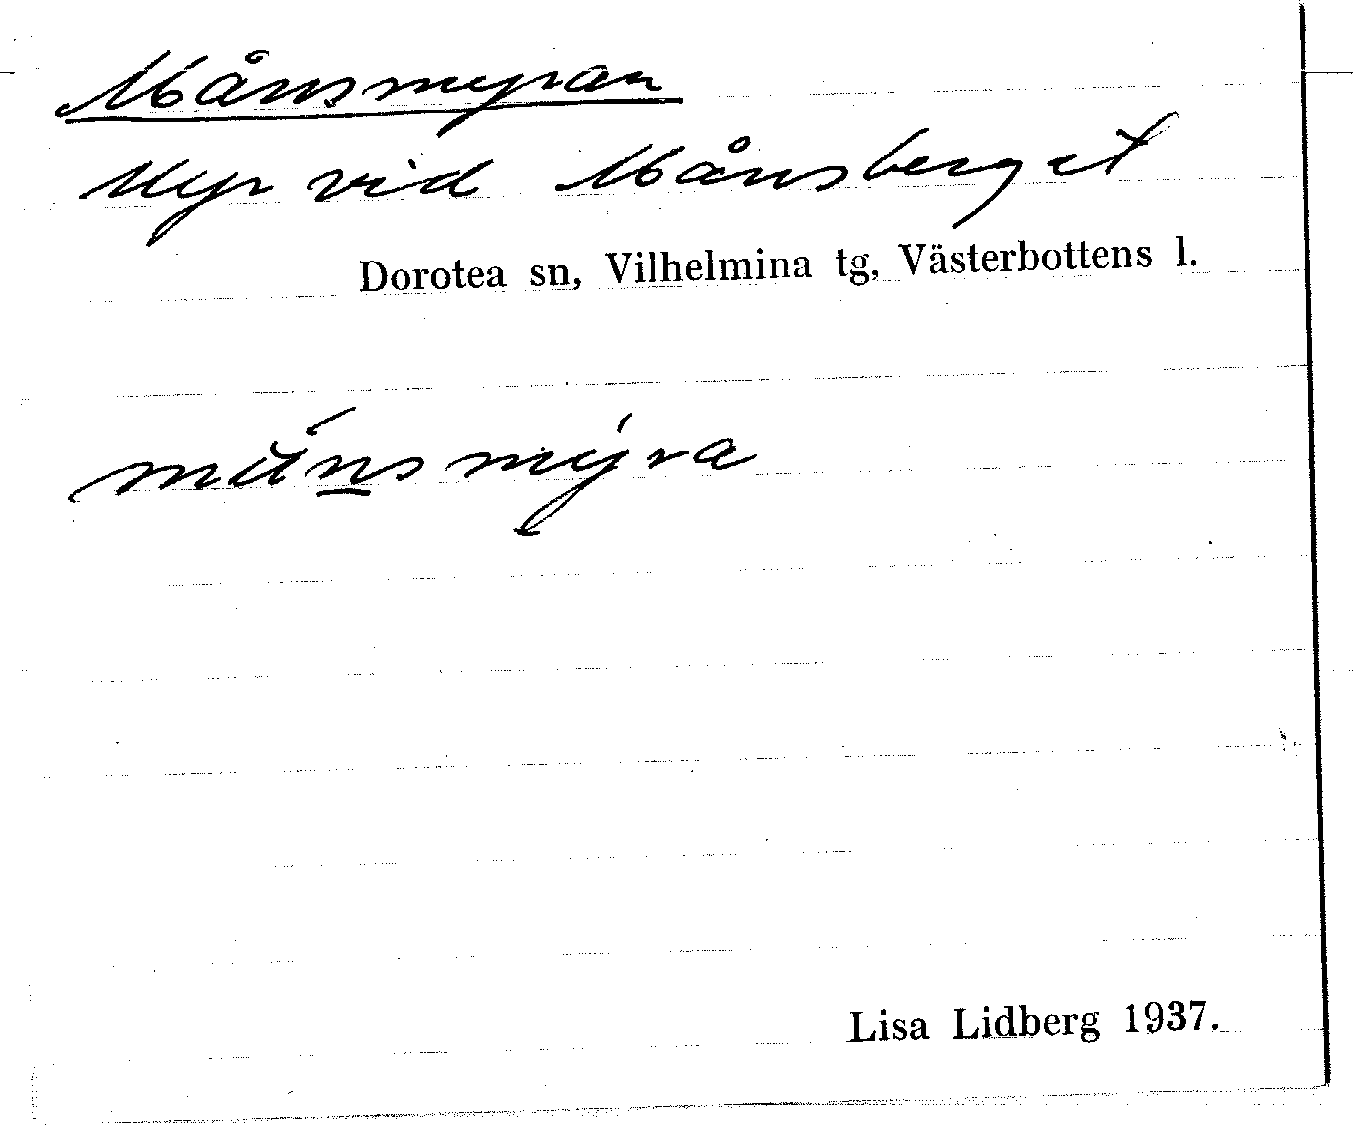 Månsmyran
Myr vid Månsberget
Dorotea sn, Vilhelmina tg, Västerbottens l.
Lisa Lidberg 1937.